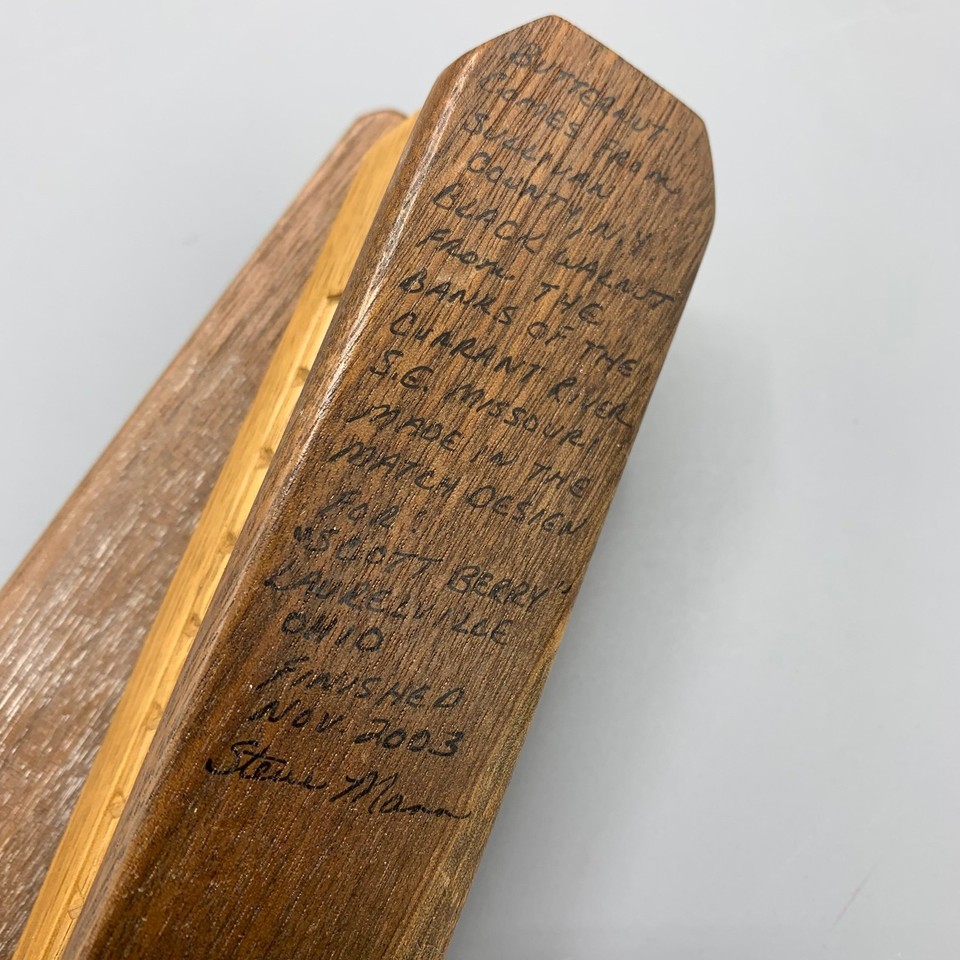 BUTTERNUT
COMES FROM
SULLIVAN
COUNTY, N.Y.
BLACK WALNUT
FROM THE
BANKS OF THE
CURRANT RIVER
S.E. MISSOURI
MADE IN THE
MATCH DESIGN
FOR!
"SCOTT BERRY"
LAURELVILLE
OHIO
FINISHED
NOV. 2003
Steve Mann